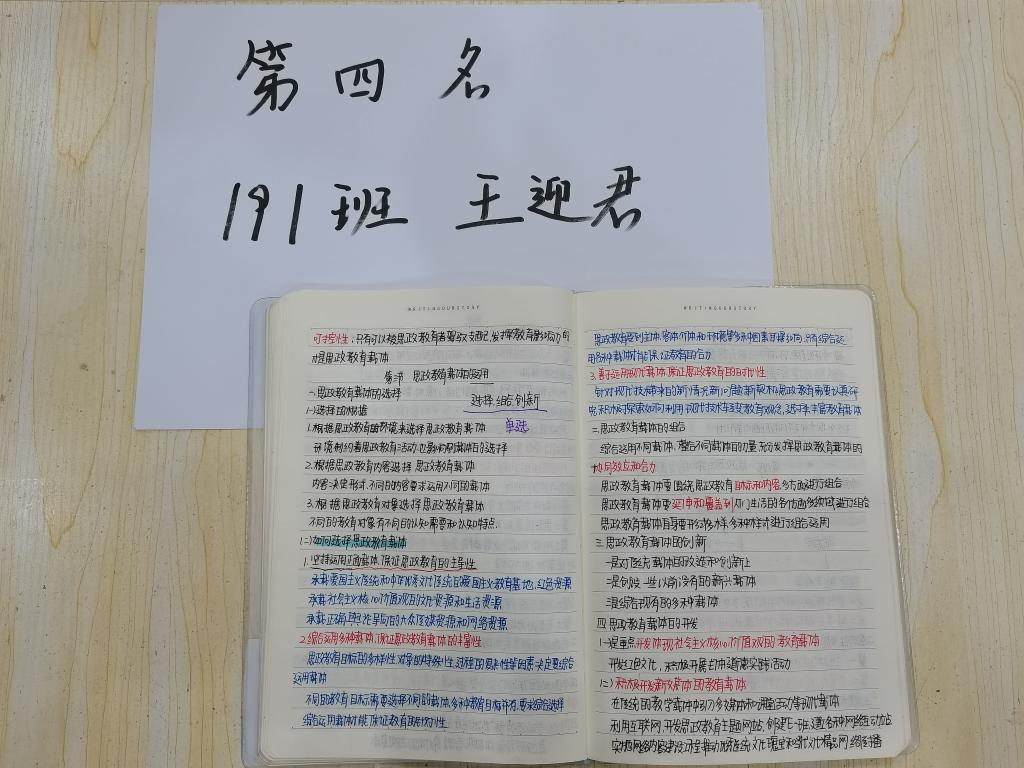 第四名
191班 王迎君
WRITINGOURSTORY
可控性：只有可以被思政教育者吸收支配,发挥教育影响力的
才是思政教育载体
第二节 思政教育载体的运用
一.思政教育载体的选择 选择.组合.创新
(一)选择的根据
1.根据思政教育的环境来选择思政教育载体 单选
环境制约着思政教育活动,也影响到载体的选择
2.根据思政教育内容选择思政教育载体
内容决定形式.不同的内容要求运用不同的载体
3.根据思政教育对象选择思政教育载体
不同的教育对象有不同的认知需要和认知特点
(二)如何选择思政教育载体
1.坚持运用正面载体,保证思政教育的主导性
承载爱国主义传统和中华优秀文化传统的爱国主义教育基地,红色资源
承载社会主义核心价值观的文化资源和生活资源
承载正确舆论导向的大众传媒资源和网络资源
2.综合运用多种载体,保证思政教育载体的丰富性
思政教育目标的多样性.对象的特殊性.过程的周来性等因素决定要综合
运用载体
不同的教育目标需要选择不同的载体,多种教育目标并存,要求综合选择
综合运用载体才能保证教育取得
WRITINGOURSTORY
思政教育受到主体.客体.介体和环境等多种因素的影响,只有综合运
用各种载体,才能保证教育的合力
3.善于运用现代载体,保证思政教育的时代性
针对现代技术带来的新情况.新问题.新契机和思政教育需要认真研
究.积极探索如何利用现代技术,转变教育观念,选择丰富教育载体
二.思政教育载体的组合
综合运用不同载体,整合不同载体的力量,充分发挥思政教育载体的
协同效应和合力
思政教育载体要围绕思政教育目标和内容,多方面进行组合
思政教育载体要延伸和覆盖到人们生活的各方面,多领域进行组合
思政教育载体自身要开终多样,多种样式进行组合运用
三.思政教育载体的创新
一是对传统载体的改进和创新上
二是创设一些以前没有的新兴载体
三是综合现有的多种载体
四.思政教育载体的开发
(一)注重点开发体现社会主义核心价值观的教育载体
开发红色文化,积极开展自体道德实践活动
(二)积极开发新媒体的教育载体
在传统的教学载体中引入多媒体和课程互动等现代载体
利用互联网,开发思政教育主题网站,创建 班道,各种网络互动站
实施网络内容建设工程,推动优秀传统文化瑰宝和当代文化精品网络传播